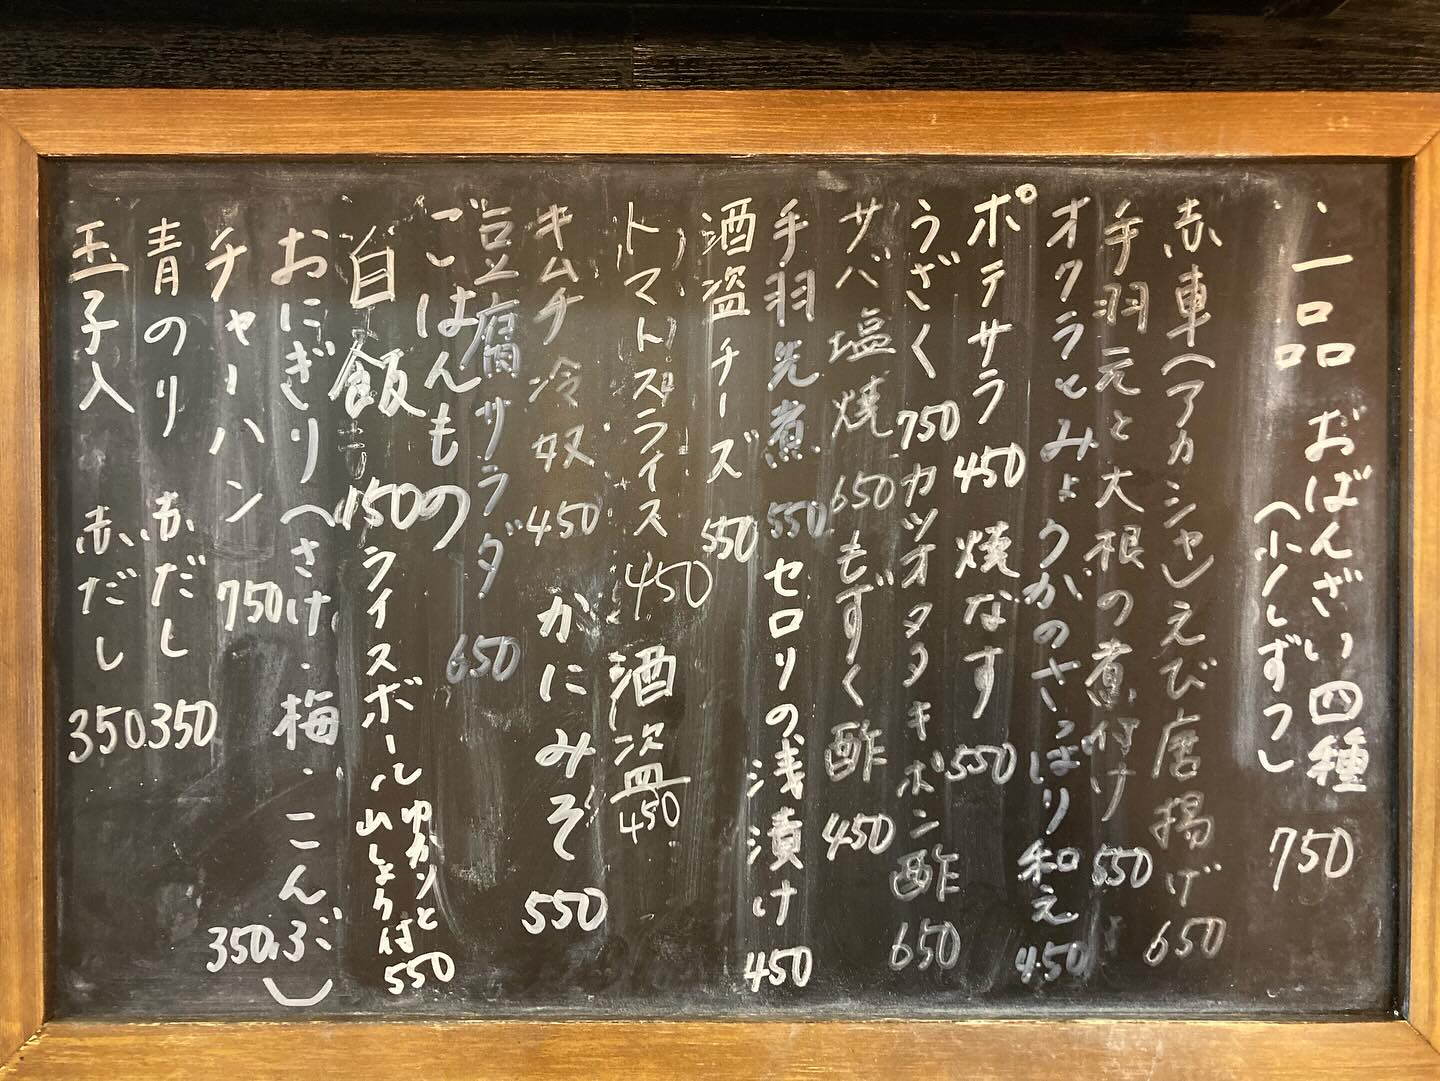 一品 おばんざい四種 750
(少しずつ)
赤車(アカシャ)えび唐揚げ 650
手羽元と大根の煮付け 550
オクラとみょうがのさっぱり和え 450
ポテサラ 450 焼なす 550
うざく 750 カツオタタキポン酢 650
サバ塩焼 650 もずく酢 450
手羽先煮 550 セロリの浅漬け 450
酒盗チーズ 550
トマトスライス 450 酒盗 450
キムチ冷奴 450 かにみそ 550
豆腐サラダ 650
ごはんもの
白飯 150 ライスボール ゆかりと
山しょう付 550
おにぎり(さけ・梅・こんぶ) 350
チャーハン 750
青のり 赤だし 350
玉子入 赤だし 350